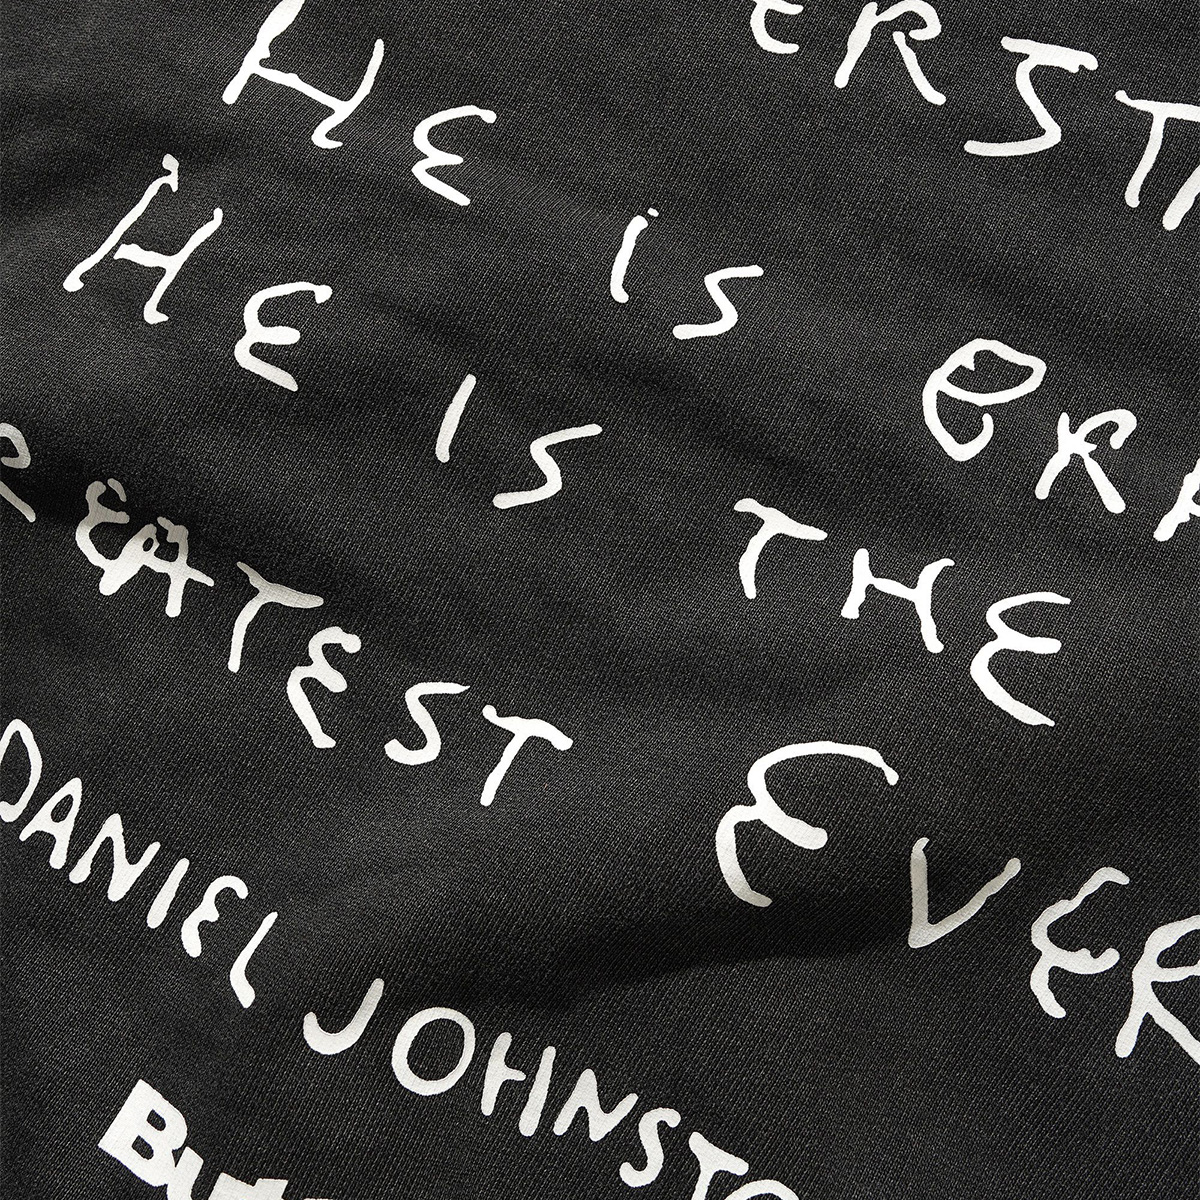 ERST
HE is GRE
HE IS THE
REATEST EVER
DANIEL JOHNSTO
But